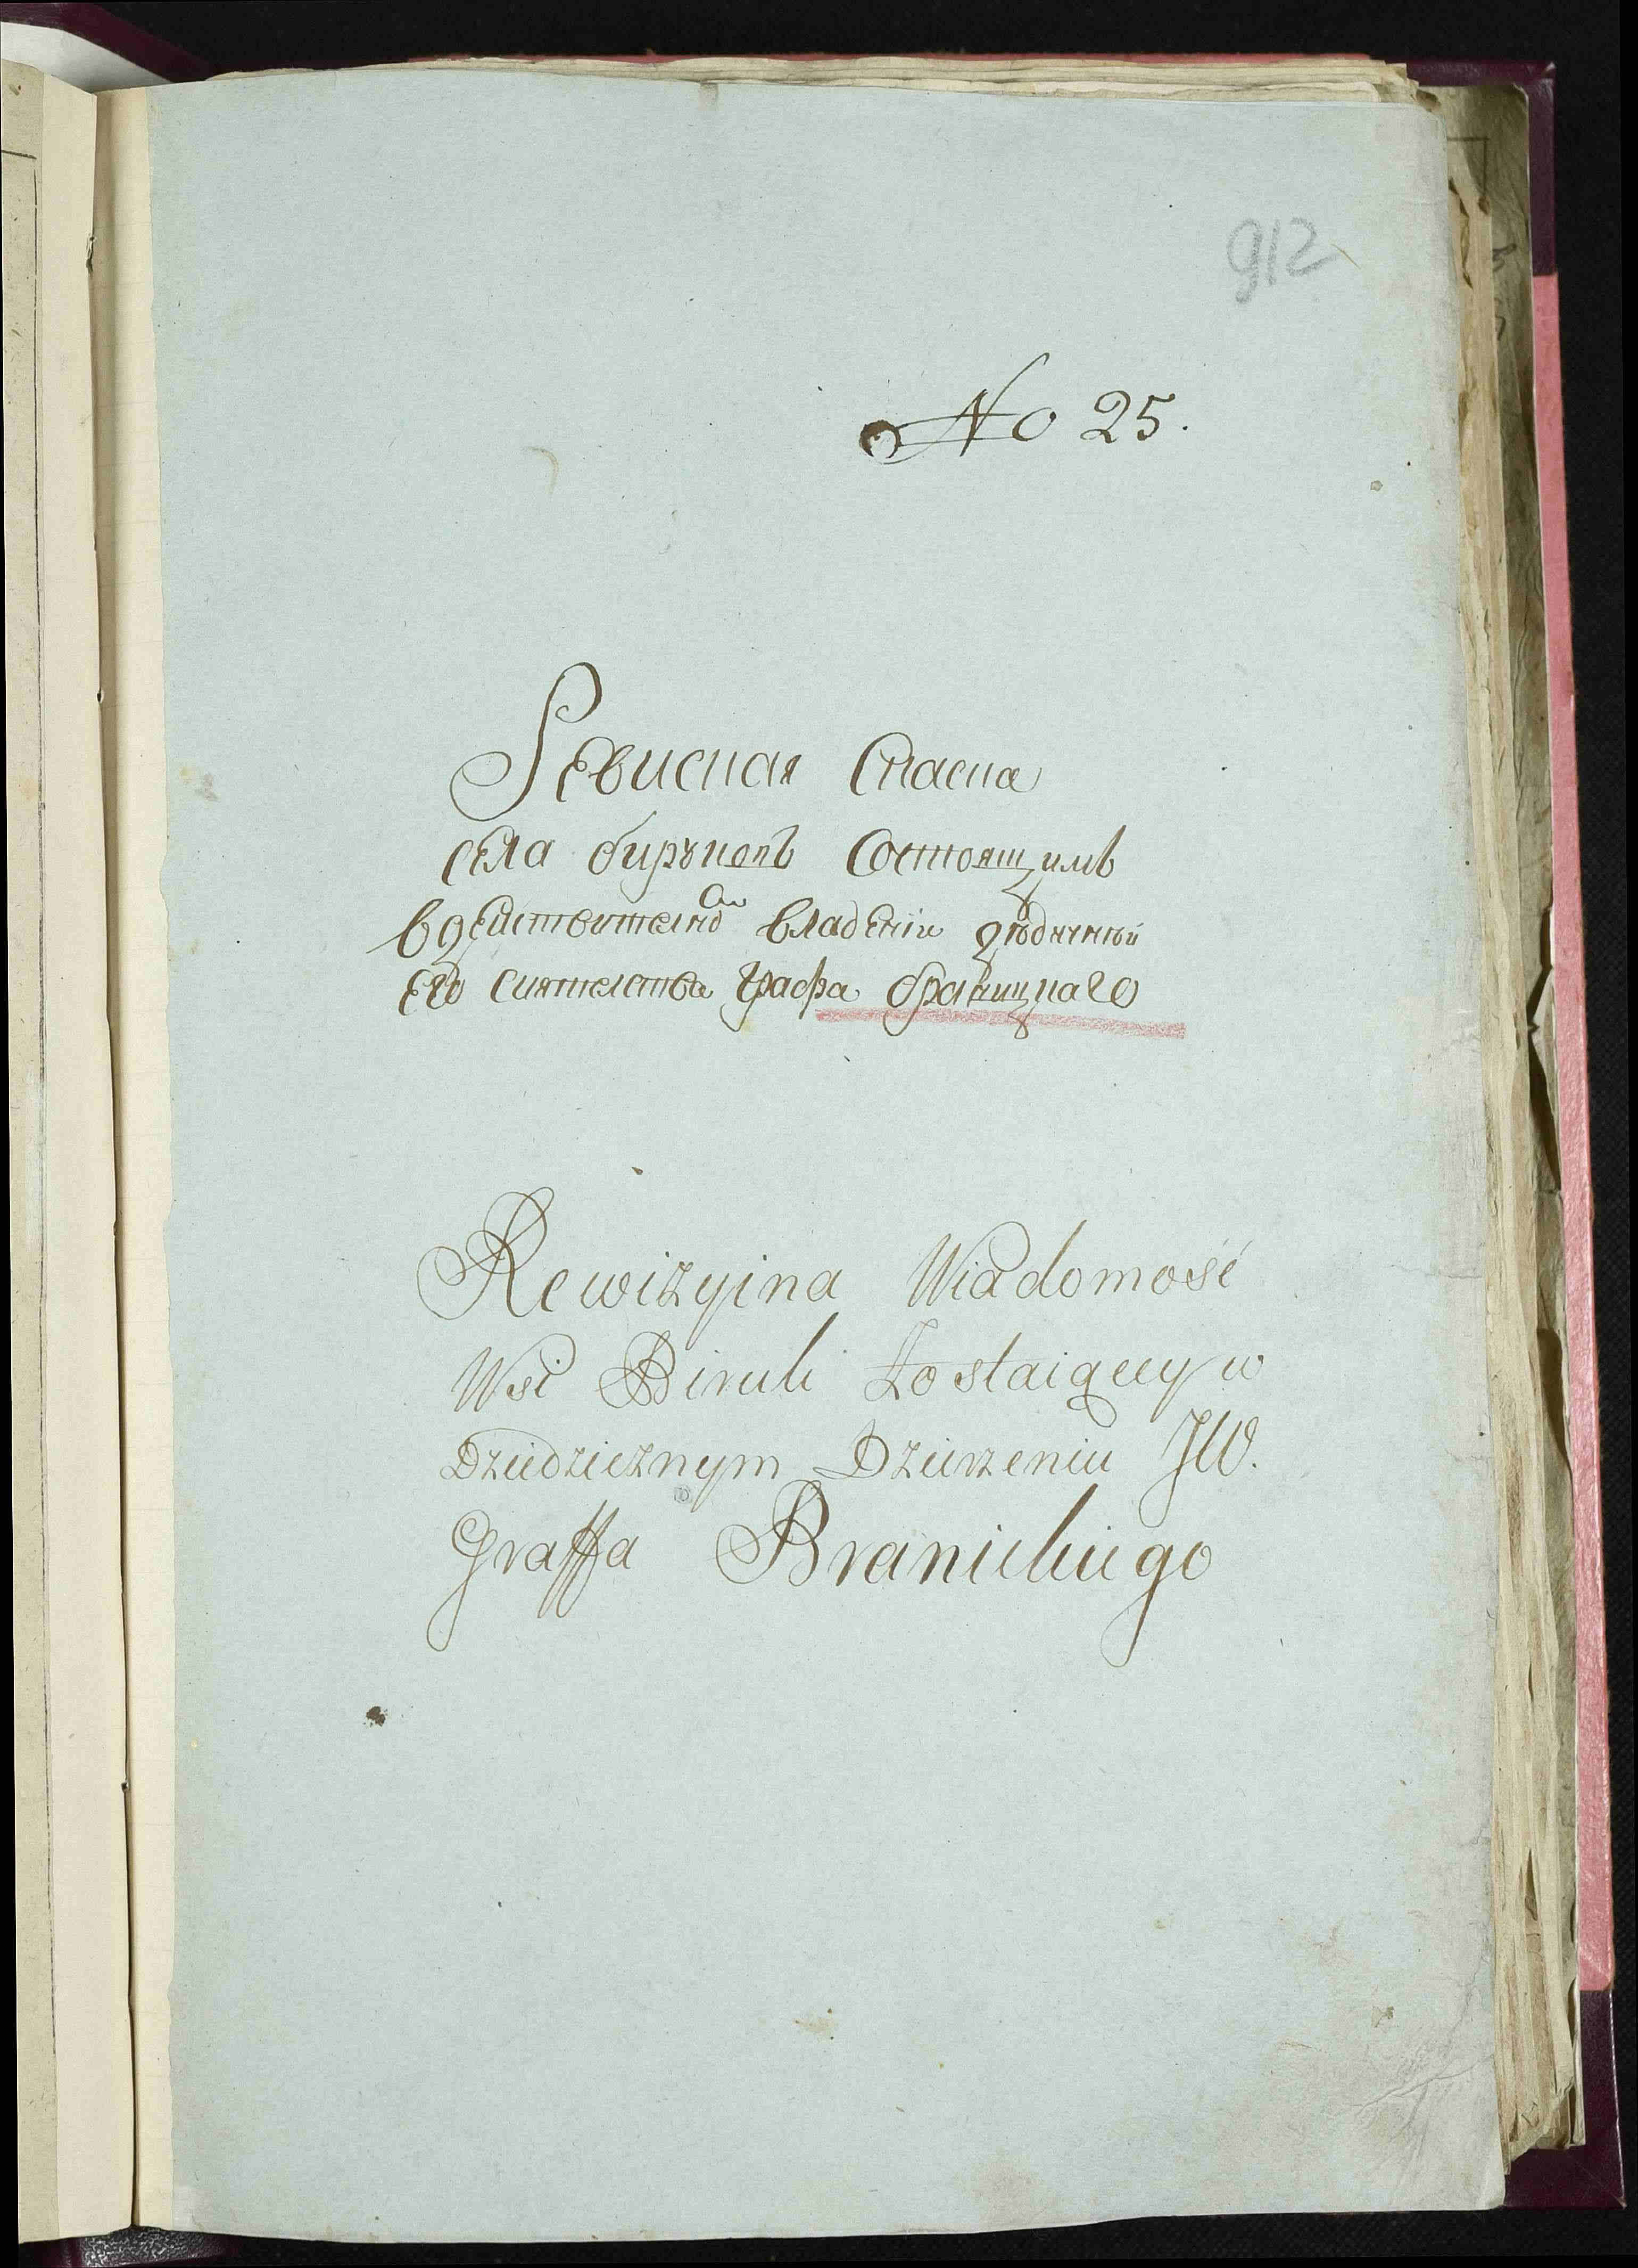 912
No 25.
Ревиснаꙗ Сказка
села бируковъ Состоящимъ
в действително владении
его сиятелства графа браницкаго
Rewizyina Wiadomość
Wsi Biruli Zostaiącey w
Dziedzicznym Dzierzeniu JW.
Graffa Branickiego